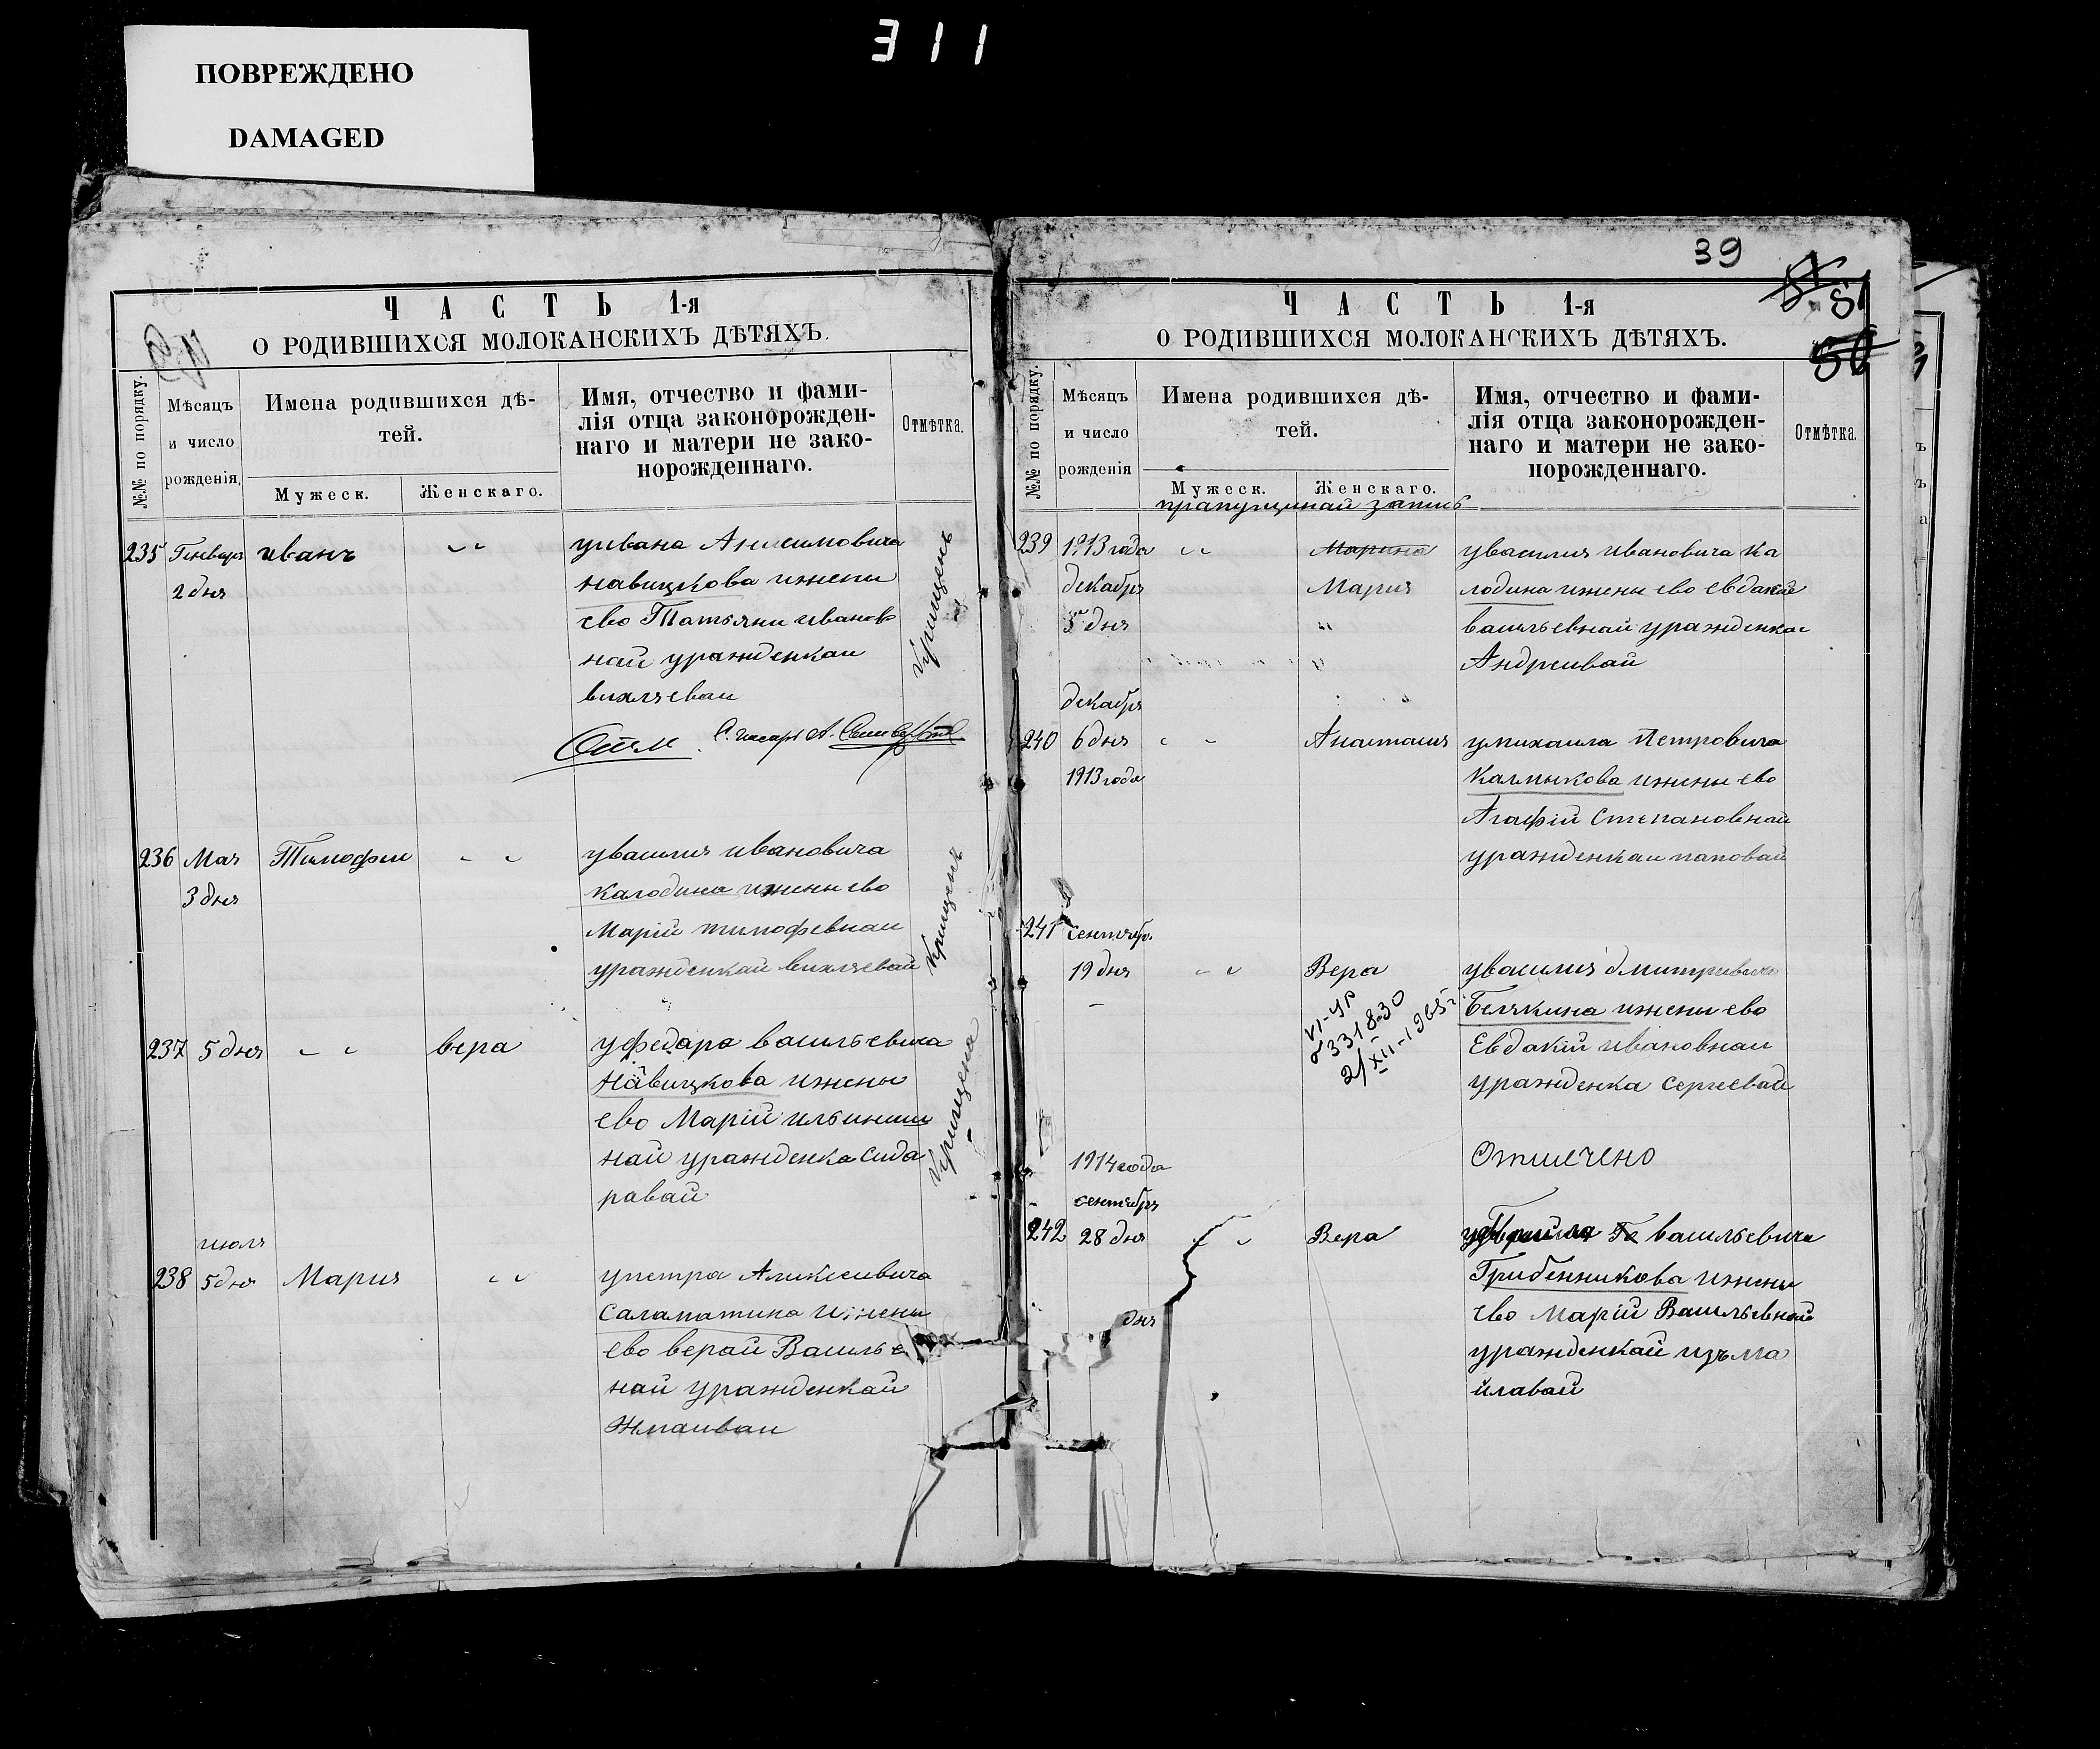 ПОВРЕЖДЕНО
DAMAGED
311
ЧАСТЬ 1-я
О РОДИВШИХСЯ МОЛОКАНСКИХЪ ДѢТЯХЪ.
№№ по порядку.
Мѣсяцъ
и число
рожденія.
Имена родившихся дѣ-
тей.
Мужеск.
Женскаго.
Имя, отчество и фами-
лія отца законорожден-
наго и матери не зако-
норожденнаго.
Отмѣтка.
235 Генваря иванъ " уивана Анисимовича
2 дня навицкова ижены
ево Татьяни иванов
най уражденкаи
вихляеваи
С. писарь А.
крищенъ
236 Мая Тимофеи " увасилия ивановича
3 дня калодина ижены ево
Марiй тимофевнаи
уражденкай вихляевай
крищенъ
237 5 дня " вера уфедара васильевича
Навицкова ижены
ево Марiй ильиниш
най уражденка сида
равай
крищена
июля
238 5 дня Мария " упетра Аликсеивича
саламатина ижены
ево верай Василье
най уражденкай
Жмаиваи
39
51
50
ЧАСТЬ 1-я
О РОДИВШИХСЯ МОЛОКАНСКИХЪ ДѢТЯХЪ.
№№ по порядку.
Мѣсяцъ
и число
рожденія
Имена родившихся дѣ-
тей.
Мужеск.
Женскаго.
Имя, отчество и фами-
лія отца законорожден-
наго и матери не зако-
норожденнаго.
Отмѣтка.
прапущинай запись
239 1913 года " Марина увасилия ивановича ка
декабря Мария лодина ижены ево евдакiй
5 дня " васильевнай уражденкаи
Андреивай
декабря
240 6 дня " Анастасия умихаила Петровича
1913 года Калмыкова ижены ево
Агафiй Степановнай
уражденкаи паповай
241 сентябр.
19 дня " Вера увасилия дмитривича
Белякина ижены ево
Евдакiй ивановнаи
уражденка сергеевай
VI-УР
331830
2/XII-1965г.
Отмечено
1914 года
сентября
242 28 дня " Вера васильевича
Грибенникова ижены
ево Марiй Васильевнай
уражденкай изъма
йлавай
дня